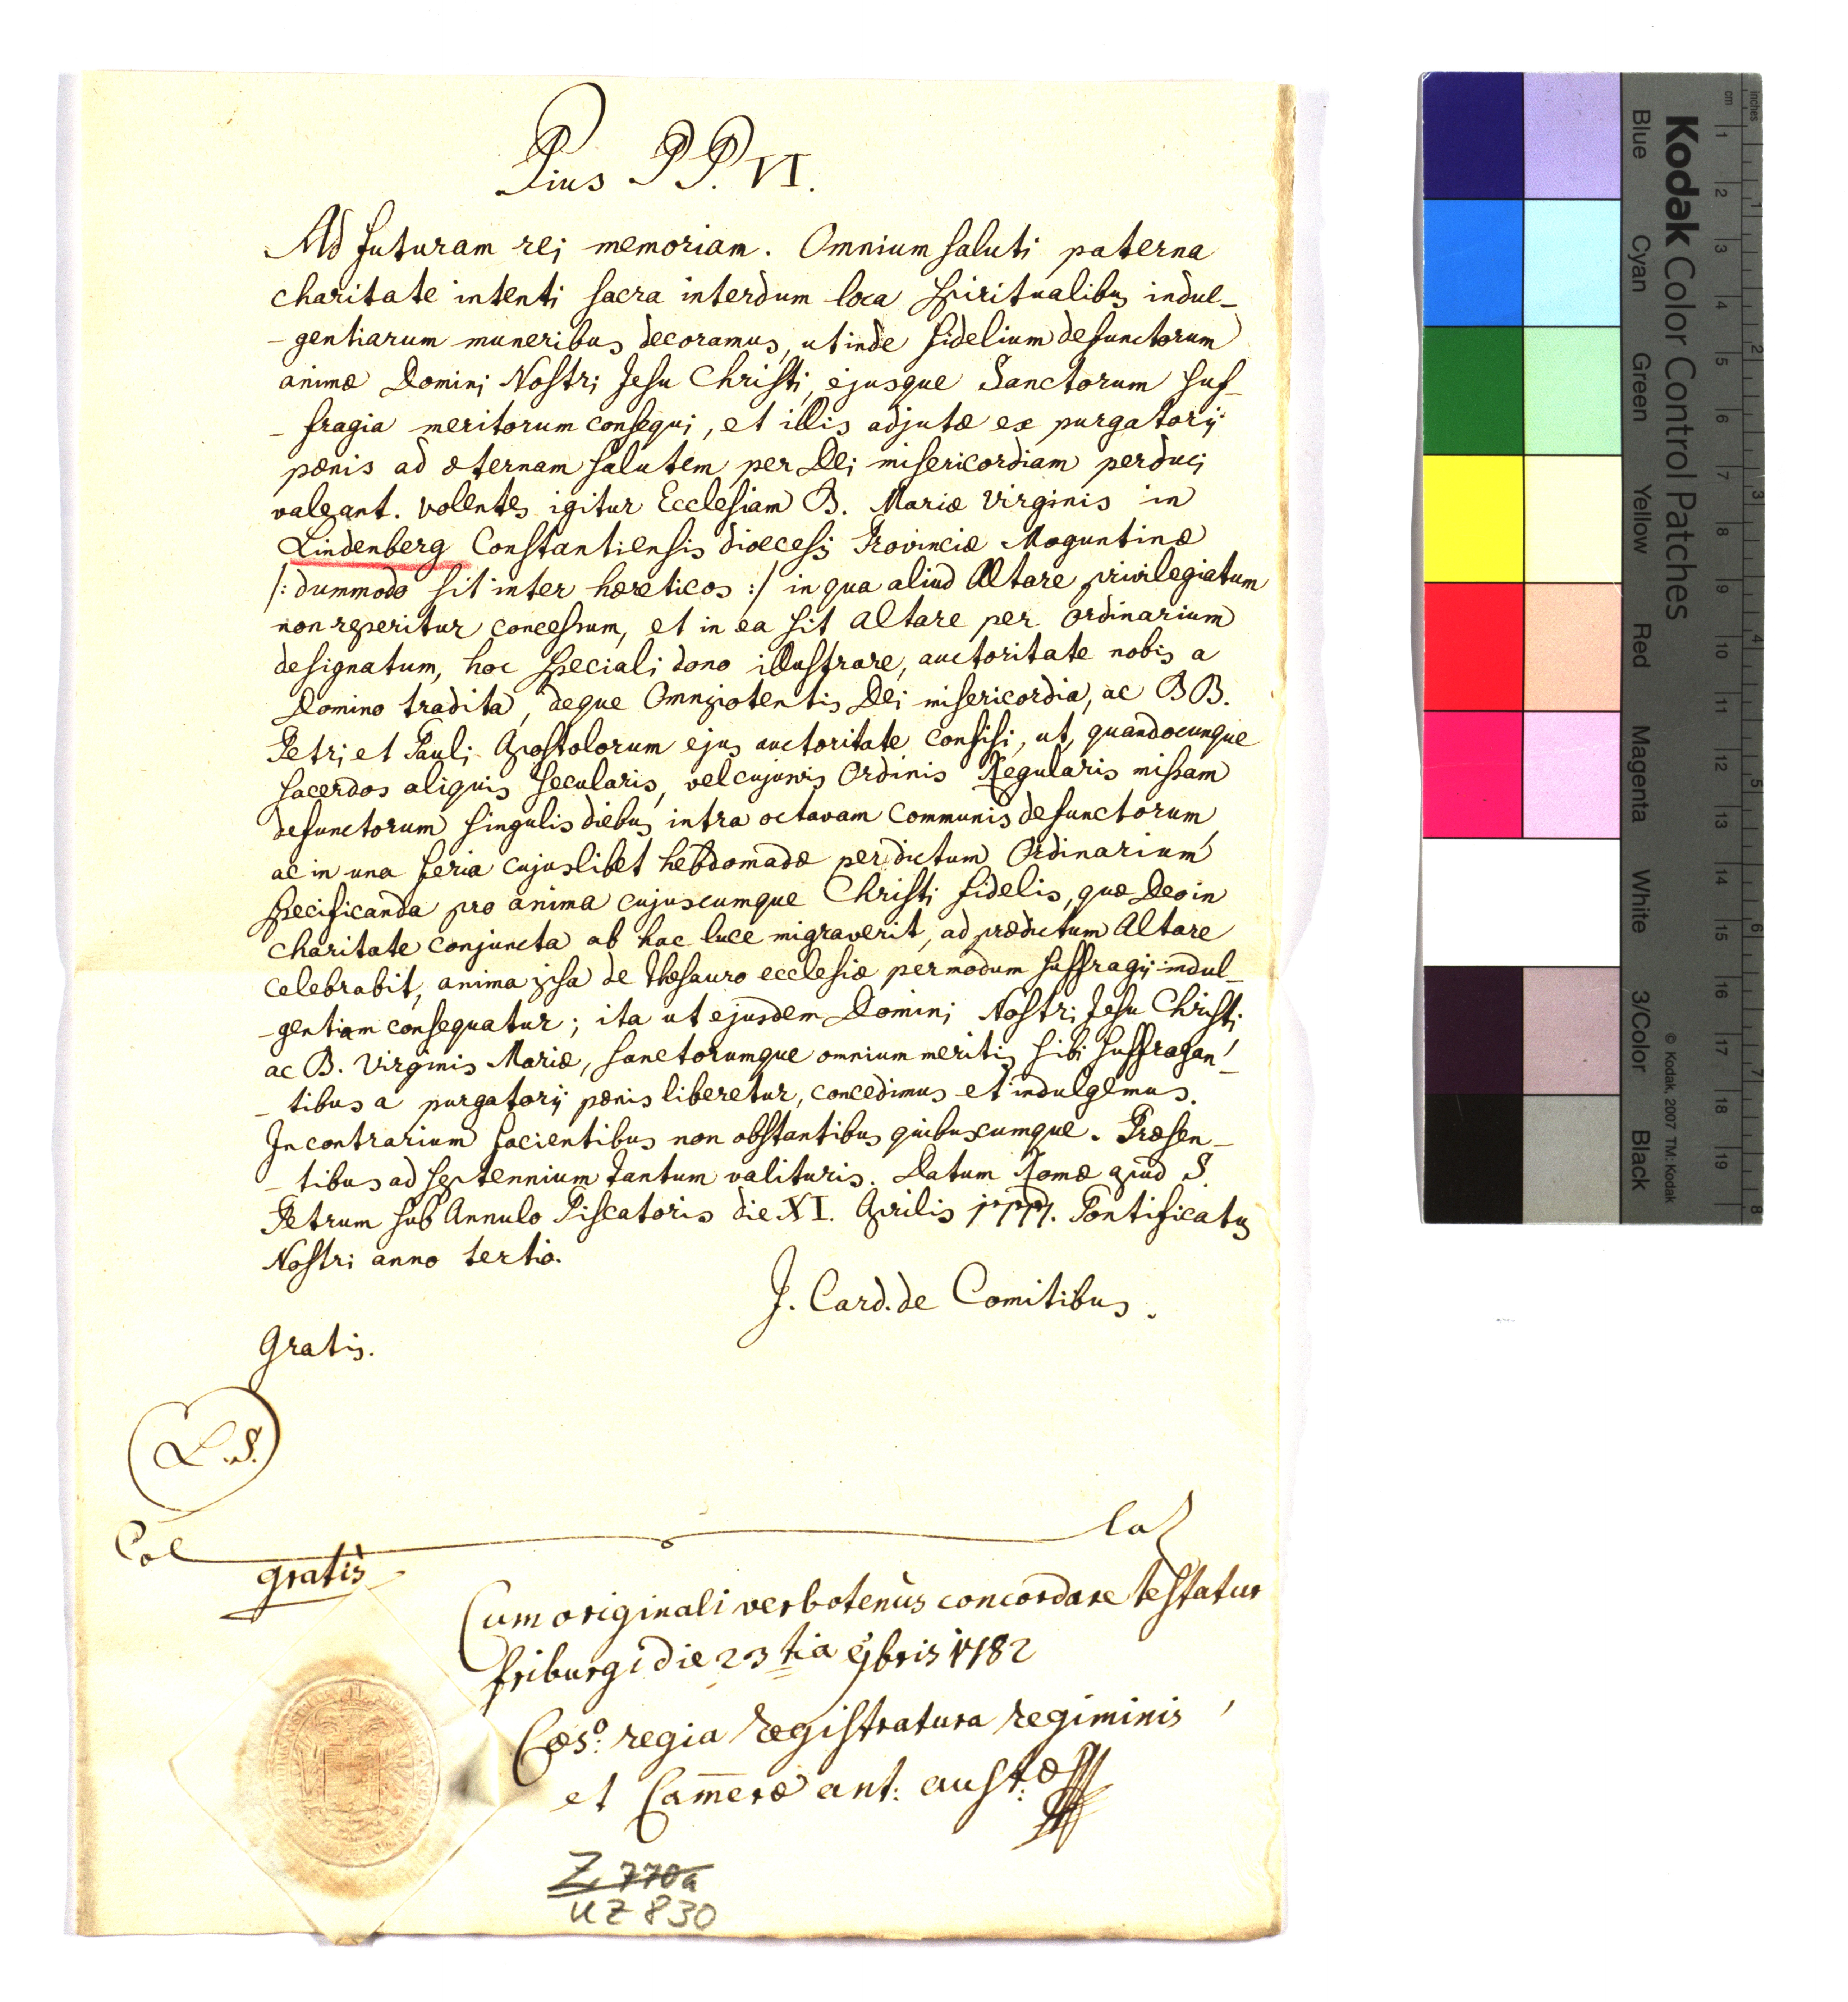 Pius PP. VI.
Ad futuram rei memoriam. Omnium saluti paterna
charitate intenti sacra interdum loca spiritualibus indul-
-gentiarum muneribus decoramus, ut inde fidelium defunctorum
animæ Domini Nostri Jesu Christi, ejusque Sanctorum suf-
-fragia meritorum consequi, et illis adjutæ ex purgatorij
pœnis ad æternam salutem per Dei misericordiam perduci
valeant. volentes igitur Ecclesiam B. Mariæ Virginis in
Lindenberg Constantiensis diœcesis Provinciæ Moguntinæ
/: dummodo sit inter hæreticos :/ in qua aliud Altare privilegiatum
non reperitur concessum, et in ea sit altare per ordinarium
designatum, hoc speciali dono illustrare, auctoritate nobis a
Domino tradita, deque Omnipotentis Dei misericordia, ac BB.
Petri et Pauli Apostolorum ejus auctoritate confisi, ut, quandocunque
sacerdos aliquis secularis, vel cujusvis Ordinis Regularis missam
defunctorum singulis diebus intra octavam communis defunctorum,
ac in una feria cujuslibet hebdomadæ per dictum Ordinarium
specificanda pro anima cujuscumque Christi fidelis, quæ Deo in
charitate conjuncta ab hac luce migraverit, ad prædictum Altare
celebrabit, anima ipsa de thesauro ecclesiæ per modum suffragij indul-
-gentiam consequatur; ita ut ejusdem Domini Nostri Jesu Christi
ac B. Virginis Mariæ, sanctorumque omnium meritis sibi suffragan-
-tibus a purgatorij pœnis liberetur, concedimus et indulgemus.
In contrarium facientibus non obstantibus quibuscumque. Præsen-
-tibus ad septennium tantum valituris. Datum Romæ apud S.
Petrum sub Annulo Piscatoris die XI. Aprilis 1777. Pontificatus
Nostri anno tertio.
J. Card. de Comitibus.
Gratis.
L.S.
Col la
gratis
Cum originali verbotenùs concordare testatur
friburgi die 23tia 9bris 1782
Cæs:o regia Registratura regiminis
et Cam̅eræ ant: aust:æ
Z 770a
UZ 830
Kodak Color Control Patches
Blue Cyan Green Yellow Red Magenta White 3/Color Black
© Kodak, 2007 TM: Kodak
cm 1 2 3 4 5 6 7 8 9 10 11 12 13 14 15 16 17 18 19
inches 1 2 3 4 5 6 7 8